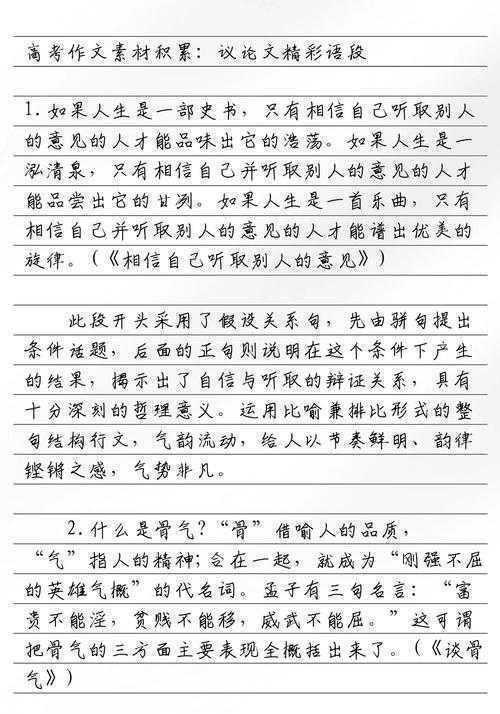 高考作文素材积累：议论文精彩语段
1. 如果人生是一部史书，只有相信自己听取别人
的意见的人才能品味出它的浩荡。如果人生是一
泓清泉，只有相信自己并听取别人的意见的人才
能品尝出它的甘冽。如果人生是一首乐曲，只有
相信自己并听取别人的意见的人才能谱出优美的
旋律。(《相信自己听取别人的意见》)
此段开头采用了假设关系句，先由骈句提出
条件话题，后面的正句则说明在这个条件下产生
的结果，揭示出了自信与听取的辩证关系，具有
十分深刻的哲理意义。运用比喻兼排比形式的整
句结构行文，气韵流动，给人以节奏鲜明、韵律
铿锵之感，气势非凡。
2. 什么是骨气？“骨”借喻人的品质，
“气”指人的精神；合在一起，就成为“刚强不屈
的英雄气概”的代名词。孟子有三句名言：“富
贵不能淫，贫贱不能移，威武不能屈。”这可谓
把骨气的三方面主要表现全概括出来了。(《谈骨
气》)